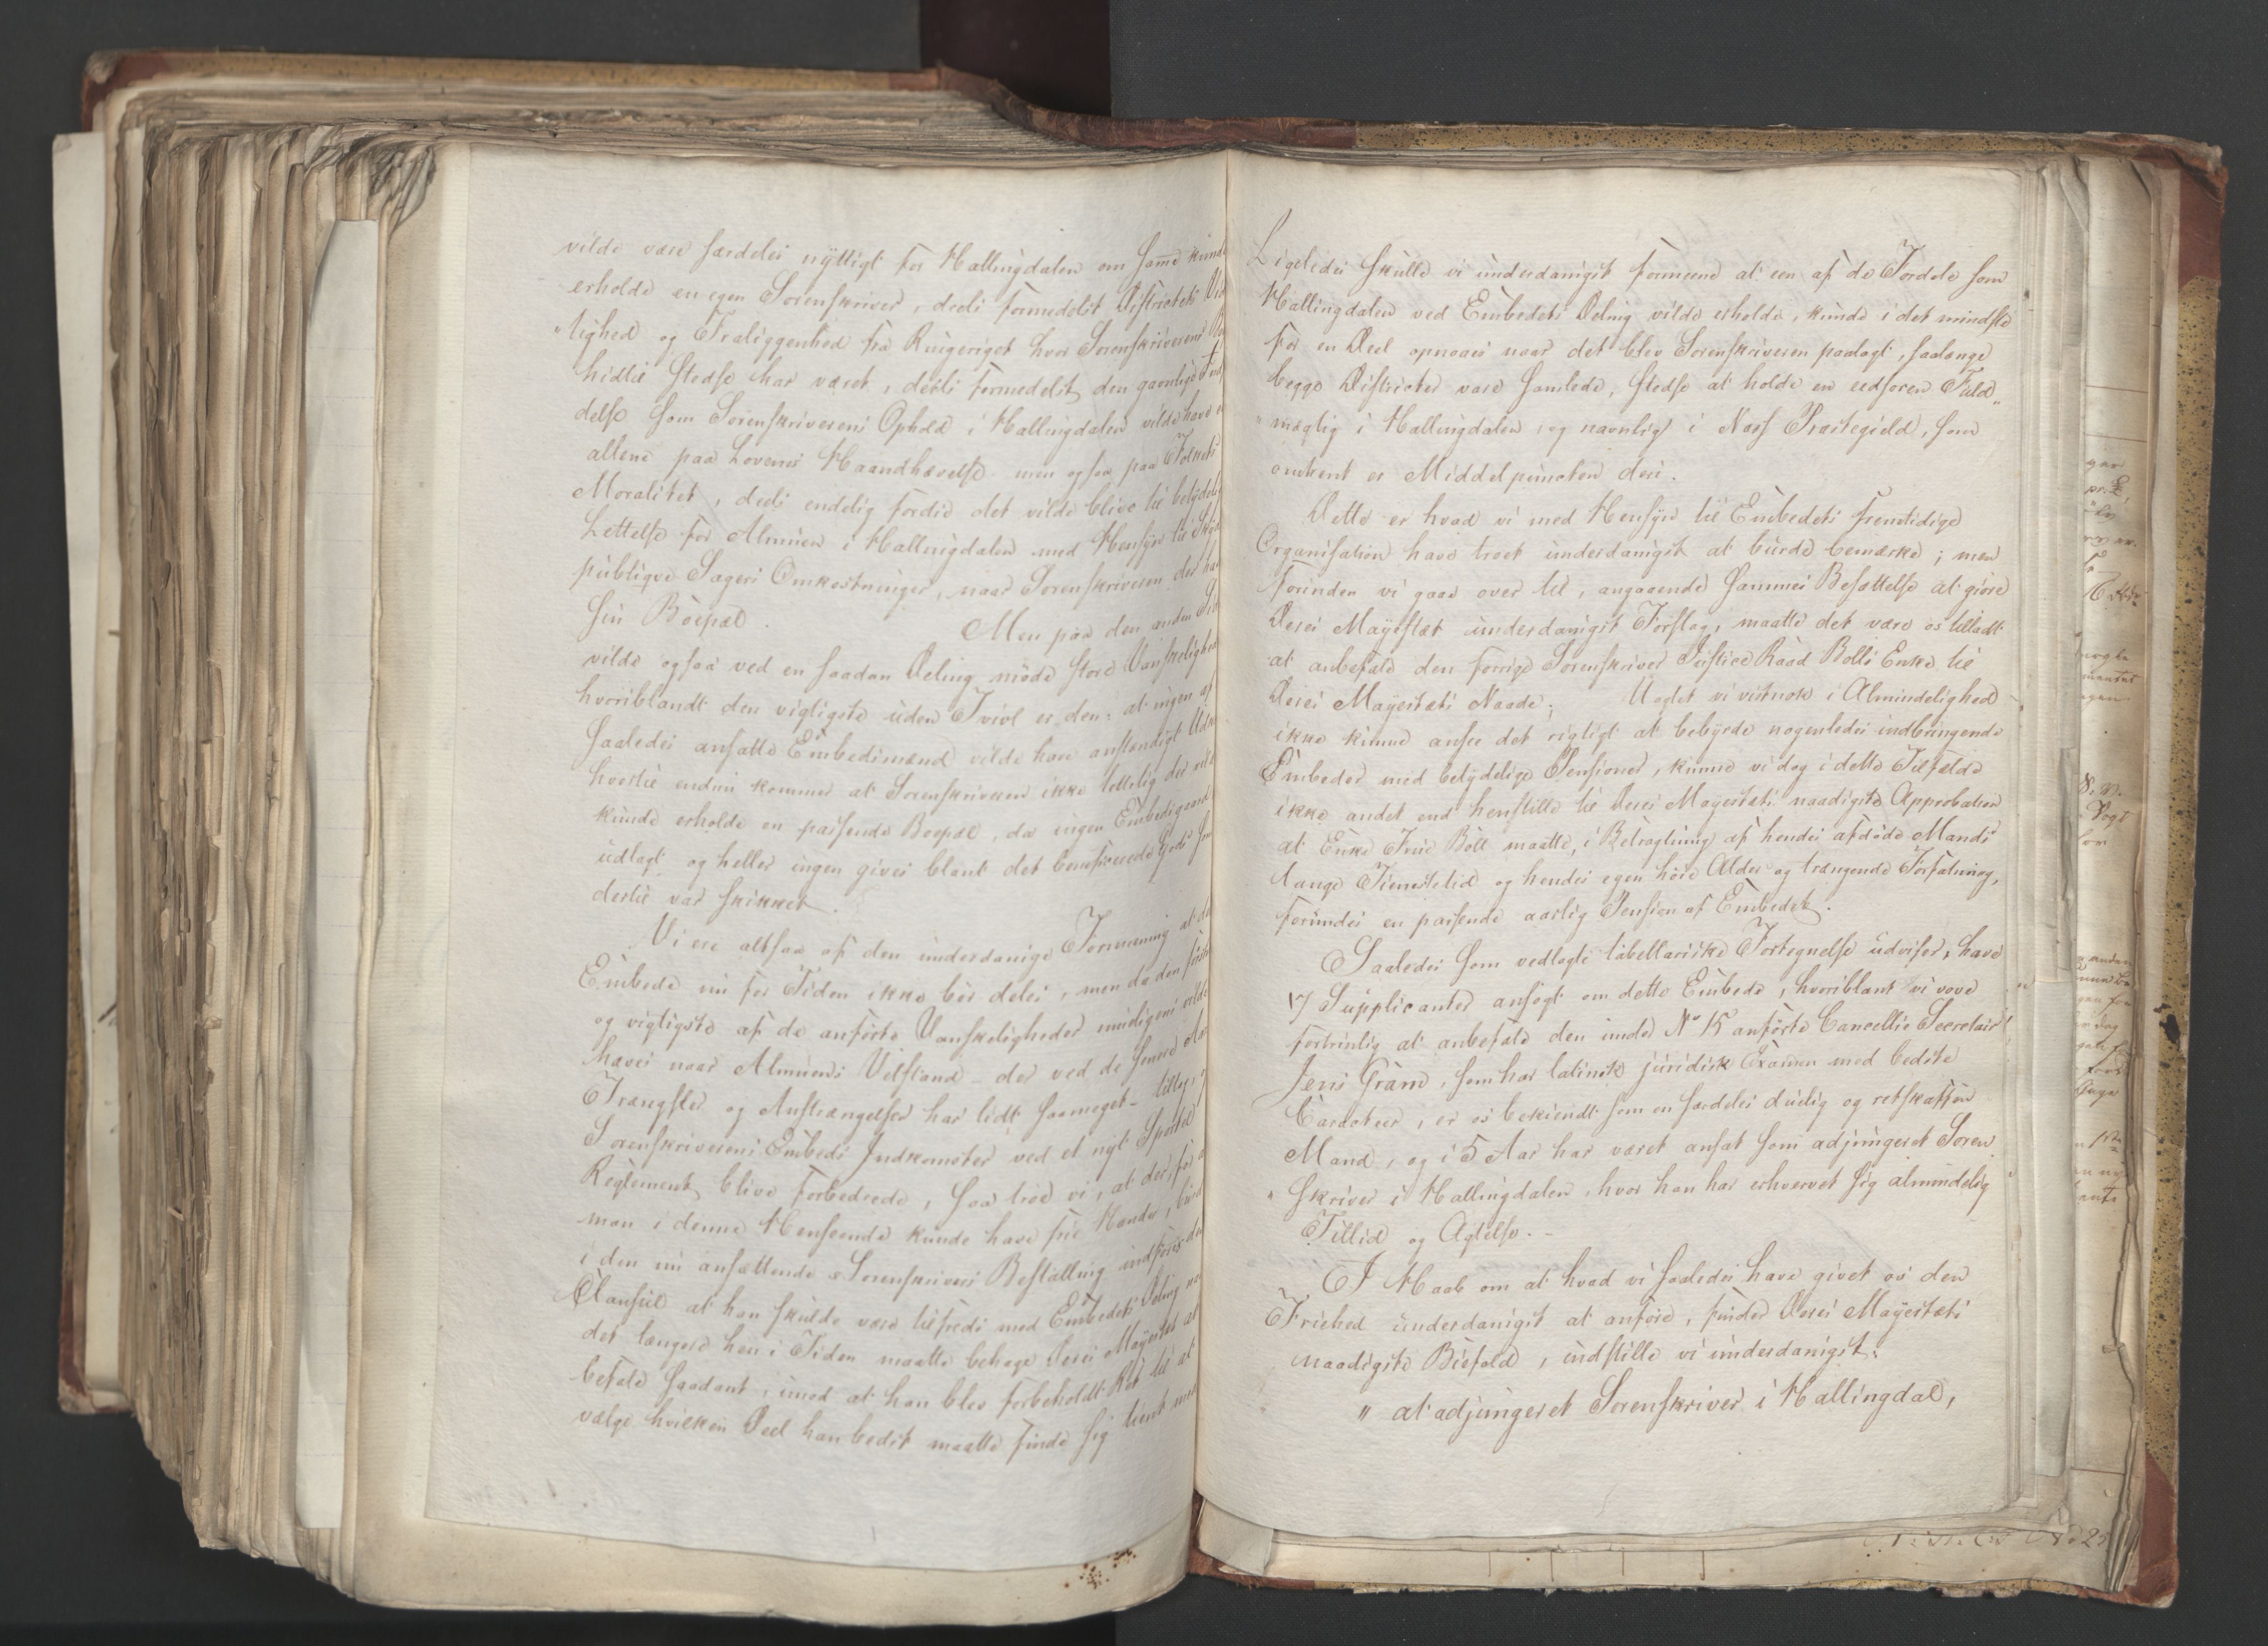 vilde være særdeles nyttigt for Hallingdalen om samme kunde
erholde en egen Sorenskriver, deels formedelst Districtets Vid-
tlighed og Fraliggenhed fra Ringeriget hvor Sorenskriverens
hidtil stedse har været, deels formedelst den gavnlige
delse som Sorenskriverens Ophold i Hallingdalen vilde have ei
allene paa Lovenes Haandhævelse men ogsaa paa Folkets
Moralitet, deels endelig fordie det vilde blive til betydelig
Lettelse for Almuen i Hallingdalen med Hensyn til
publique Sagers Omkostninger, naar Sorenskriveren der har
sin Boepæl. Men paa den anden
vilde ogsaa ved en saadan Deling møde store Vanskeligheder
hvoriblandt den vigtigste uden Tvivl er den: at ingen af
saaledes ansatte Embedsmænd vilde have anstændigt
hvortil endnu kommer at Sorenskriveren ikke lettelig der
kunde erholde en passende Boepæl, da ingen Embedsgaard
udlagt og heller ingen gives blant det beneficerede Gods
dertil var skikket.
Vi ere altsaa af den underdanige Formening at
Embede nu for Tiden ikke bør deles, men da den første
og vigtigste af de anførte Vanskeligheder muligens vilde
hæves naar Almuens Velstand – der ved de senere
Trængsler og Anstrængelser har lidt saameget –
Sorenskriverens Embeds Indkomster ved et nyt Sportel
Reglement blive forbedrede, saa troe vi, at der, for at
man i denne Henseende kunde have frie Hænder, burde
i den nu ansættende Sorenskrivers Bestalling indføres den
Clausul at han skulde være tilfreds med Embedets Deling naar
det længere hen i Tiden maatte behage Deres Majestæt at
befale saadant, imod at han blev forbeholdt Ret til at
vælge hvilken Deel han bedst maatte finde sig tient med
Ligeledes skulle vi underdanigst formeene at een af de Fordele som
Hallingdalen ved Embedets Deling vilde erholde, kunde i det mindste
for en Deel opnaaes naar det blev Sorenskriveren paalagt, saalænge
begge Districter vare samlede, stedse at holde en eedsoren Fuld„
„mægtig i Hallingdalen, og navnlig i Næss Præstegield, som
omtrent er Middelpuncten deri.
Dette er hvad vi med Hensyn til Embedets fremtidige
Organisation have troet underdanigst at burde bemærke; men
forinden vi gaae over til, angaaende sammes Besættelse at giøre
Deres Mayestæt underdanigst Forslag, maatte det være os tilladt
at anbefale den forrige Sorenskriver Justice Raad Bølls Enke til
Deres Mayestæts Naade; Uagtet vi vistnok i Almindelighed
ikke kunne ansee det rigtigt at bebyrde nogenledes indbringende
Embeder med betydelige Pensioner, kunne vi dog i dette Tilfælde
ikke andet end henstille til Deres Mayestæts naadigste Approbation
at Enke Frue Bøll maatte, i Betragtning af hendes afdøde Mands
lange Tienestetid og hendes egen høie Alder og trængende Forfatning,
forundes en passende aarlig Pension af Embedet.
Saaledes som vedlagte tabellariske Fortegnelse udviser, have
17 Supplicanter ansøgt om dette Embede, hvoriblant vi vove
fortrinlig at anbefale den under No 15 anførte Cancellie Secretair
Jens Gram, som har latinsk juridisk Examen med bedste
Caracteer, er os bekiendt som en særdeles duelig og retskaffen
Mand, og i 5 Aar har været ansat som adjungeret Soren
„skriver i Hallingdalen, hvor han har erhvervet sig almindelig
Tillid og Agtelse. –
I Haab om at hvad vi saaledes have givet os den
Friehed underdanigst at anføre, finder Deres Mayestæts
naadigste Biefald, indstille vi underdanigst:
„ at adjungeret Sorenskriver i Hallingdal,